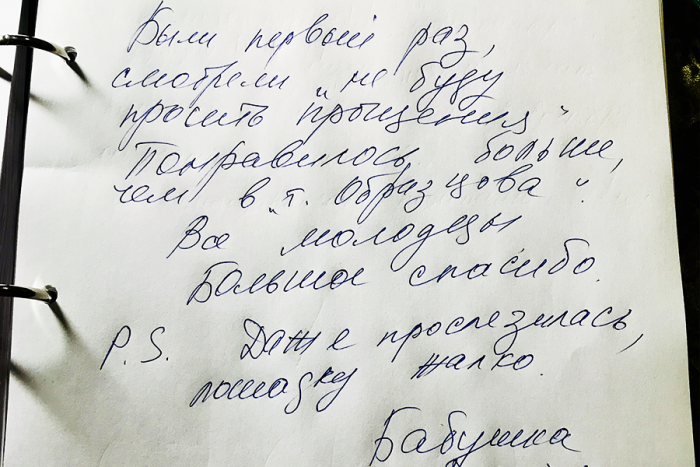 Были первый раз,
смотрели „не буду
просить прощения"
Понравилось больше,
чем в „т. Образцова".
Все молодцы
Большое спасибо.
P.S. Даже прослезилась,
лошадку жалко.
Бабушка